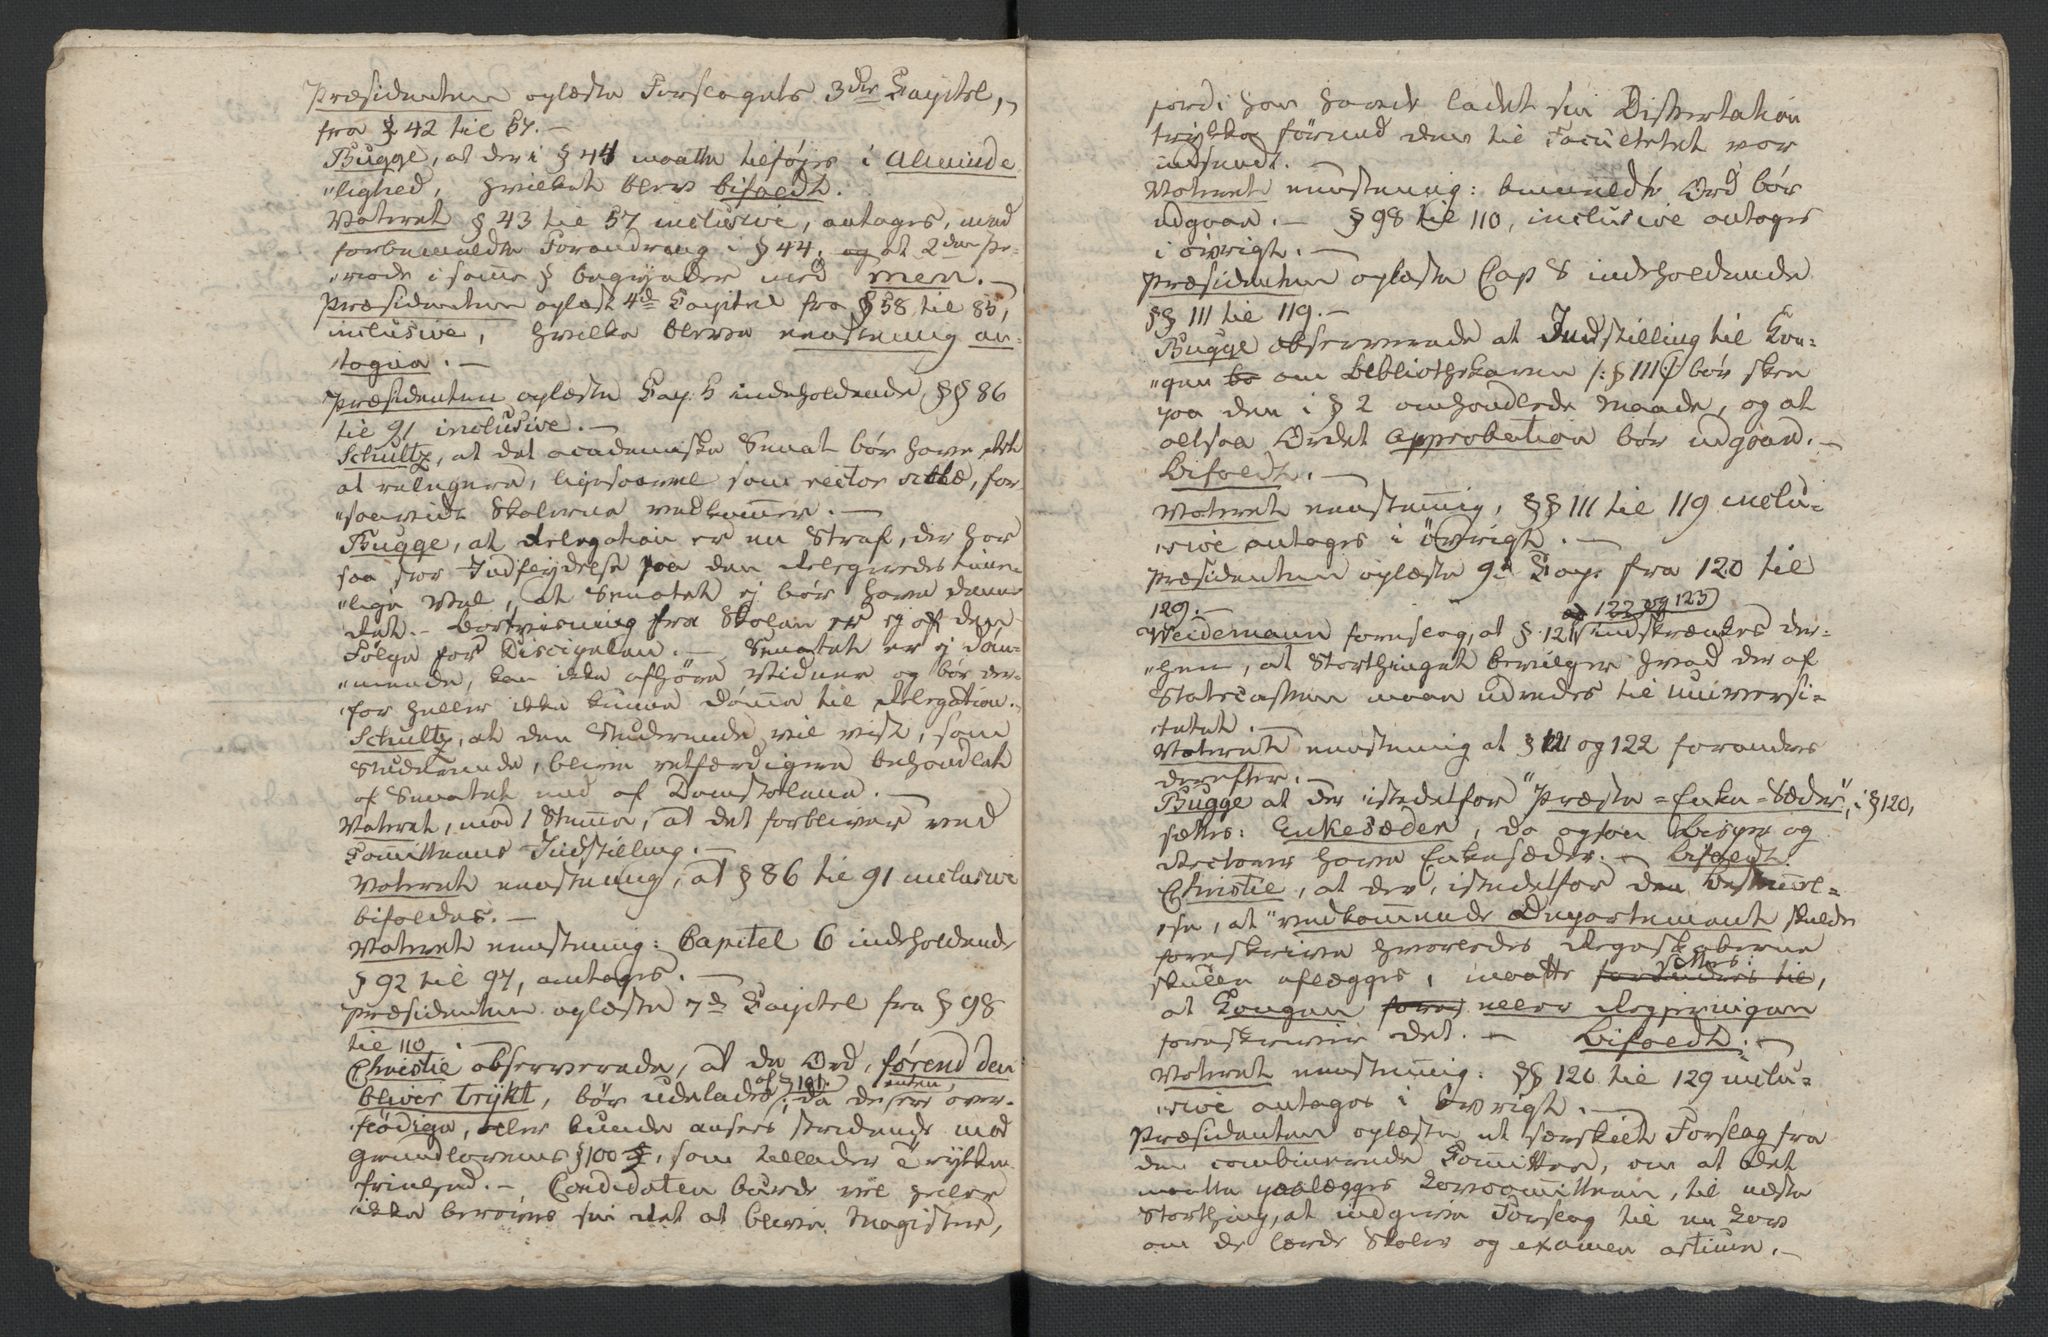 Præsidenten oplæste Forslagets 3die Capitel,
fra § 42 til 57. —
Bugge, at der i § 44 maatte tilføjes i Alminde
"lighed, hvilket blev bifaldt.
Voteret § 43 til 57 inclusive, antages, med
forbemeldte Forandring i § 44, og at 2den Pe-
"riode i samme § begynder med men. —
Præsidenten oplæst 4de Capitel fra § 58 til 85,
inclusive, hvilke bleve eenstemmig an-
"tagne. —
Præsidenten oplæste Cap. 5 indeholdende §§ 86
til 91 inclusive. —
Schultz, at det academiske Senat bør have Ret
at relegere, ligesaavel som rector scholæ, for
"saavidt Skolerne vedkommer. —
Bugge, at Relegation er en Straf, der har
saa stor Indflydelse paa den Relegeredes time-
"lige Vel, at Senatet ej bør have denne
Ret. — Bortvisning fra Skolen er ej af den
Følge for Discipelen. — Senatet er ej døm-
"mende, kan ikke afhøre Vidner og bør der-
"for heller ikke kunne dømme til Relegation.
Schultz, at den Studerende vil vist, som
Studerende, blive retfærdigere behandlet
af Senatet end af Domstolene. —
Voteret, mod 1 Stemme, at det forbliver ved
Committeens Indstilling. —
Voteret eenstemmig, at § 86 til 91 inclusive
bifaldes. —
Voteret eenstemmig: Capitel 6 indeholdende
§ 92 til 97, antages. —
Præsidenten oplæste 7de Capitel fra § 98
til 110. —
Christie observerede, at de Ord, førend den
bliver trykt, bør udelades af § 101, da de ere enten over-
flødige, eller kunde ansees stridende mod
Grundlovens § 100, som tillader Trykke-
frihed. — Candidaten burde vel heller
ikke berøves sin Ret at blive Magister,
fordi han havde ladet sin Dissertation
trykke førend den til Facultetet var
indsendt. —
Voteret eenstemmig: bemeldte Ord bør
udgaae. — § 98 til 110, inclusive antages
i øvrigt. —
Præsidenten oplæste Cap 8 indeholdende
§§ 111 til 119. —
Bugge observerede at Indstilling til Kon-
"gen om Bibliothekaren /: § 111 :/ bør skee
paa den i § 2 omhandlede Maade, og at
altsaa Ordet Approbation bør udgaae. —
Bifaldt. —
Voteret eenstemmig, §§ 111 til 119 inclu-
"sive antages i øvrigt. —
Præsidenten oplæste 9de Cap. fra 120 til
129. —
Weidemann foreslog, at § 121, 122 og 123 indskrænkes der-
"hen, at Storthinget bevilger hvad der af
Statscassen maae udredes til Universi-
tetet. —
Voteret eenstemmig at § 121 og 122 forandres
derefter. —
Bugge at der istedetfor "Præste-Enke-Sæder", i § 120,
sættes: Enkesæder, da ogsaa Bisper og
Rectorer have Enkesæder. — Bifaldt.
Christie, at der, istedetfor den Bestemmel-
"se, at "vedkommende Departement skulde
foreskrive hvorledes Regnskaberne
skulle aflægges, maatte sættes: forandres til,
at Kongen eller Regjeringen
foreskriver det. — Bifaldt. —
Voteret eenstemmig: §§ 120 til 129 inclu-
"sive antages i øvrigt. —
Præsidenten oplæste et særskilt Forslag fra
den combinerede Committee, om at det
maatte paalægges Lovcommitteen, til næste
Storthing, at indgive Forslag til en Lov
om de lærde Skoler og examen artium. —